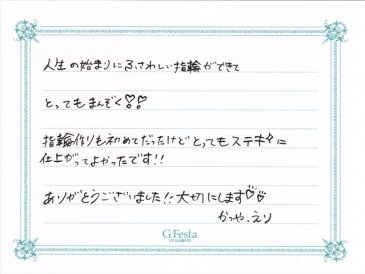 人生の始まりにふさわしい指輪ができて
とってもまんぞく♡!!
指輪作りも初めてだったけどとってもステキに
仕上がってよかったです!!
ありがとうございました!!大切にします♡♡
かつや.えり
G.Festa